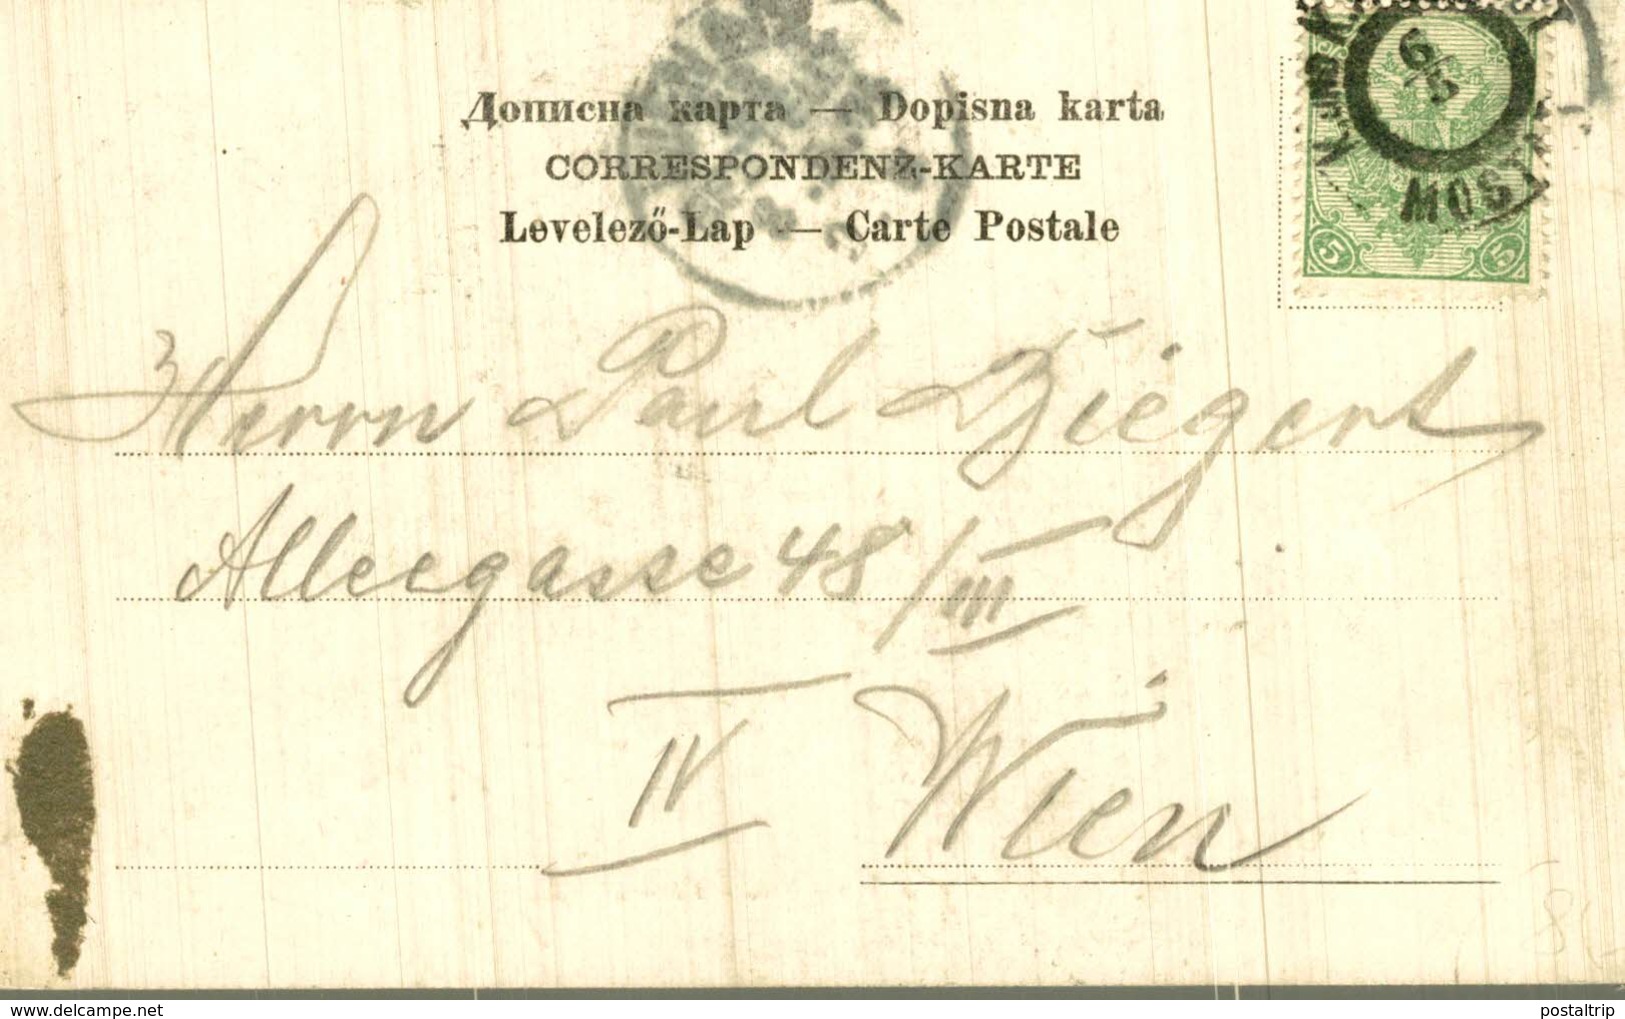 Дописна карта — Dopisna karta
CORRESPONDENZ-KARTE
Levelező-Lap — Carte Postale
MOST
5 5
Herrn Paul Ziegert
Alleegasse 48/III
IV Wien
delcampe.net
postaltrip